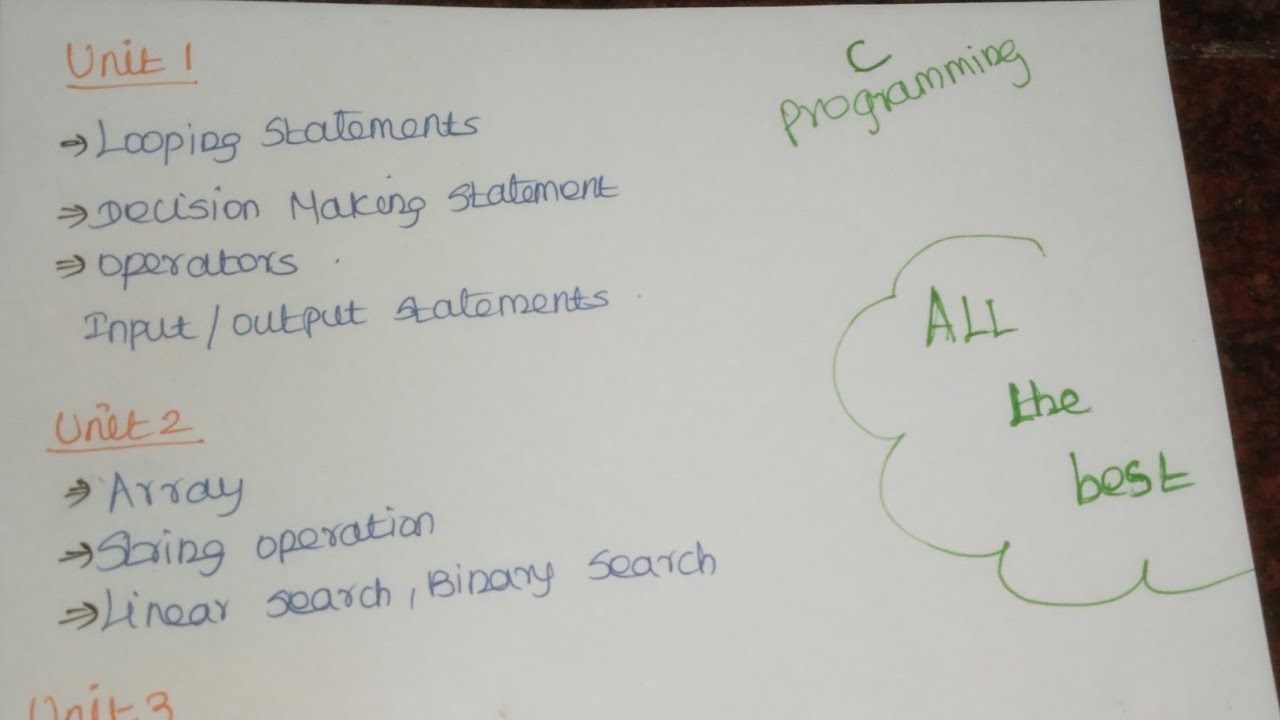 Unit 1
⇒ Looping Statements
⇒ Decision Making Statement
⇒ operators
Input / output statements
Unit 2
⇒ Array
⇒ String operation
⇒ Linear search, Binary search
Unit 3
C
programming
ALL
the
best